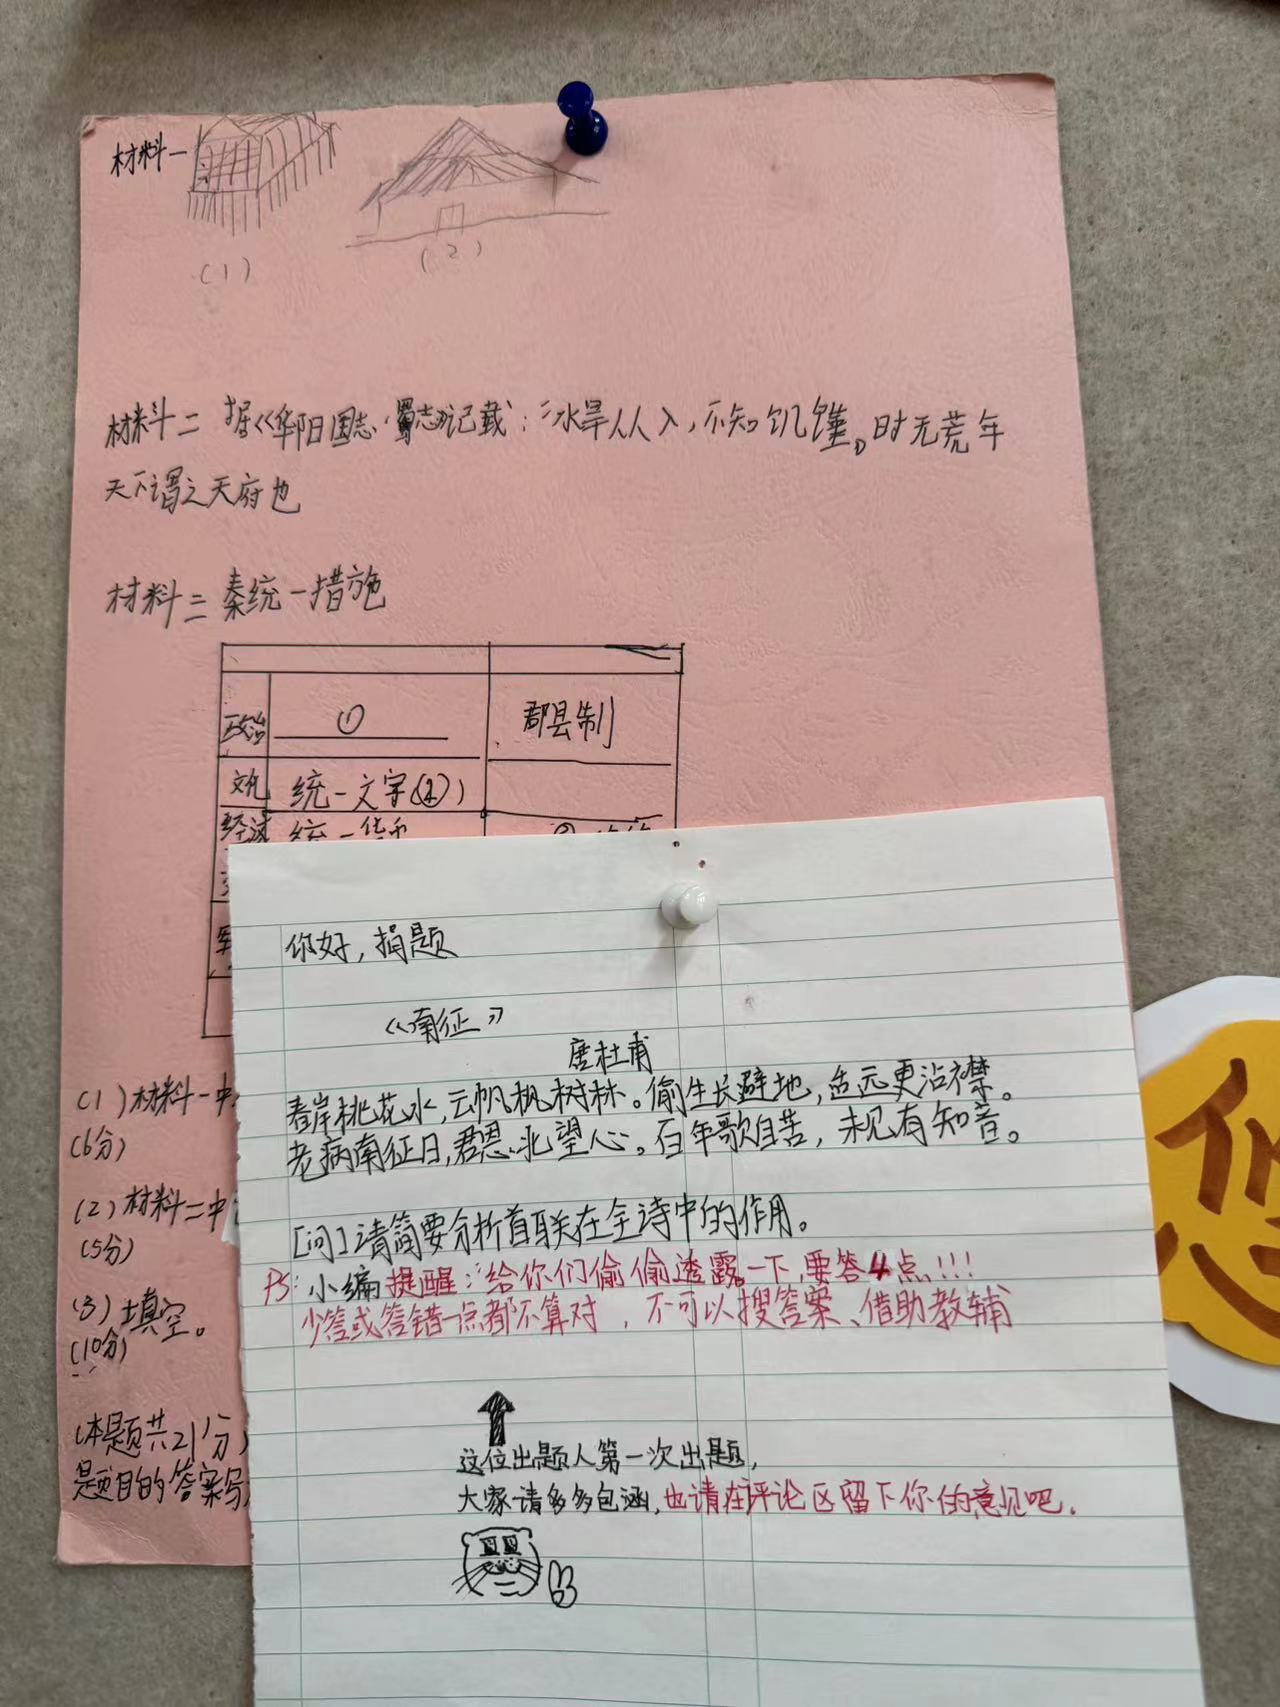 材料一
(1)
(2)
材料二 据《华阳国志·蜀志》记载:"水旱从人,不知饥馑。时无荒年
天下谓之天府也
材料三 秦统一措施
政治 ① 郡县制
文化 统一文字(②)
经济 统一货币
你好,捐题
《南征》
唐杜甫
春岸桃花水,云帆枫树林。偷生长避地,适远更沾襟。
老病南征日,君恩北望心。百年歌自苦,未见有知音。
[问]请简要分析首联在全诗中的作用。
PS:小编提醒:"给你们偷偷透露一下,要答4点!!!
少答或答错一点都不算对,不可以搜答案、借助教辅
这位出题人第一次出题,
大家请多多包涵,也请在评论区留下你的意见吧。
(1)材料一中
(6分)
(2)材料二中
(5分)
(3)填空。
(10分)
(本题共21分)
题目的答案写
您